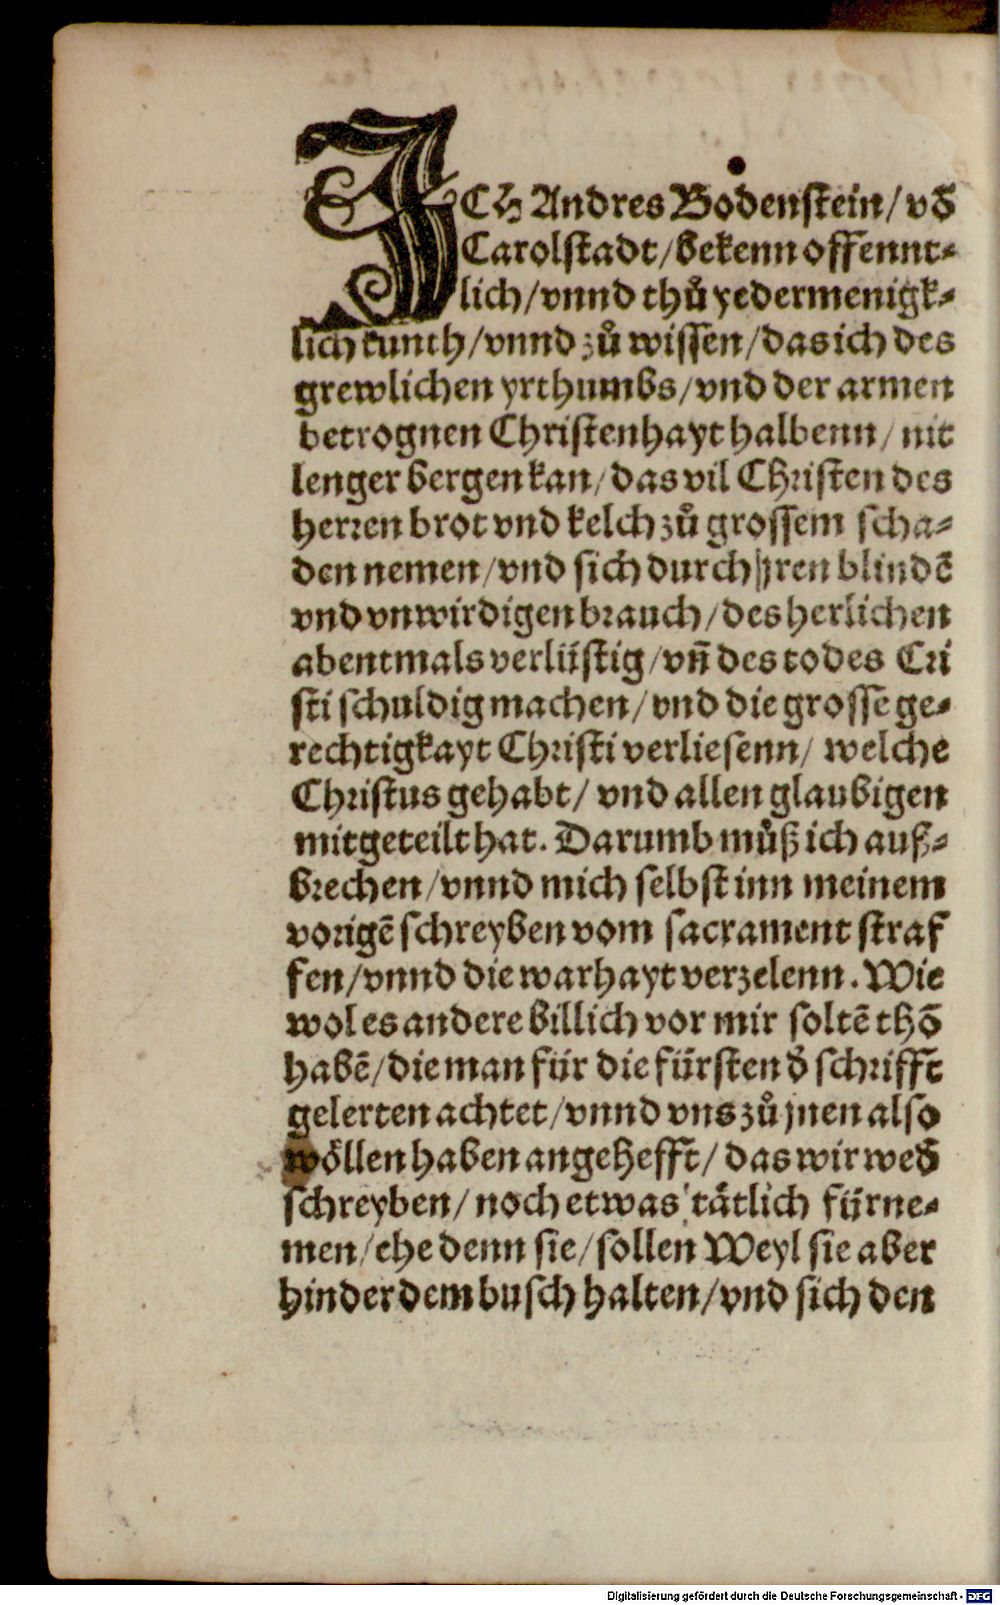 ICH Andres Bodenstein/ võ
Carolstadt/bekenn offennt⸗
lich/vnnd thů yedermenigk⸗
lich kunth/vnnd zů wissen/das ich des
grewlichen yrthumbs/vnd der armen
betrognen Christenhayt halbenn/ nit
lenger bergen kan/das vil Christen des
herren brot vnd kelch zů grossem scha⸗
den nemen/vnd sich durch jren blindẽ
vnd vnwirdigen brauch/des herlichen
abentmals verlüstig/vñ des todes Cri
sti schuldig machen/vnd die grosse ge⸗
rechtigkayt Christi verliesenn/ welche
Christus gehabt/ vnd allen glaubigen
mitgeteilt hat. Darumb můß ich auß⸗
brechen/vnnd mich selbst inn meinem
vorigẽ schreyben vom sacrament straf
fen/vnnd die warhayt verzelenn. Wie
wol es andere billich vor mir soltẽ thõ
habẽ/die man für die fürsten d̕ schrifft
gelerten achtet/vnnd vns zů jnen also
wöllen haben angehefft/ das wir wed̕
schreyben/ noch etwas tätlich fürne⸗
men/ehe denn sie/sollen Weyl sie aber
hinder dem busch halten/vnd sich den
Digitalisierung gefördert durch die Deutsche Forschungsgemeinschaft - DFG